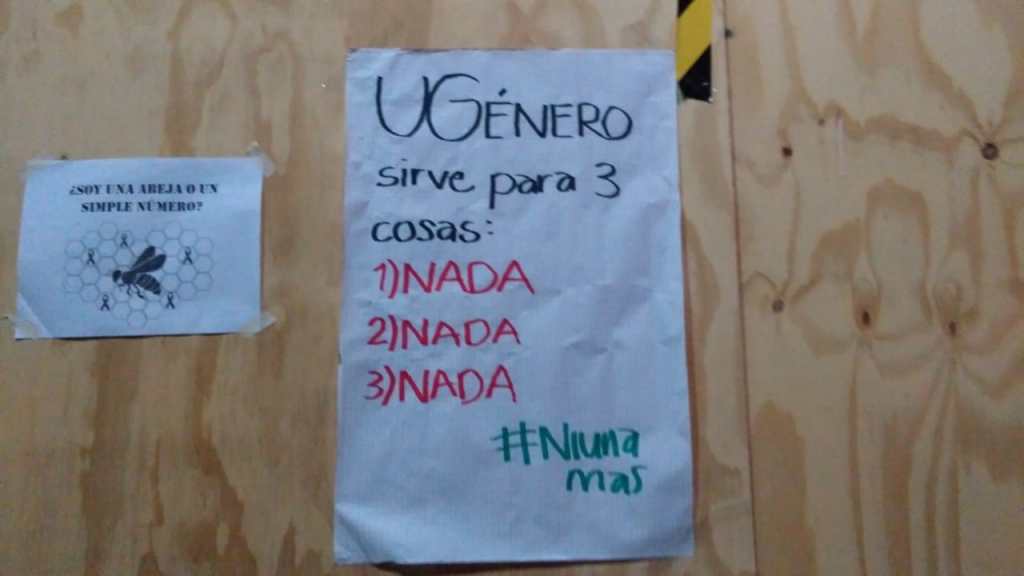 ¿SOY UNA ABEJA O UN
SIMPLE NÚMERO?
UGÉNERO
sirve para 3
cosas:
1)NADA
2)NADA
3)NADA
#Niuna
mas